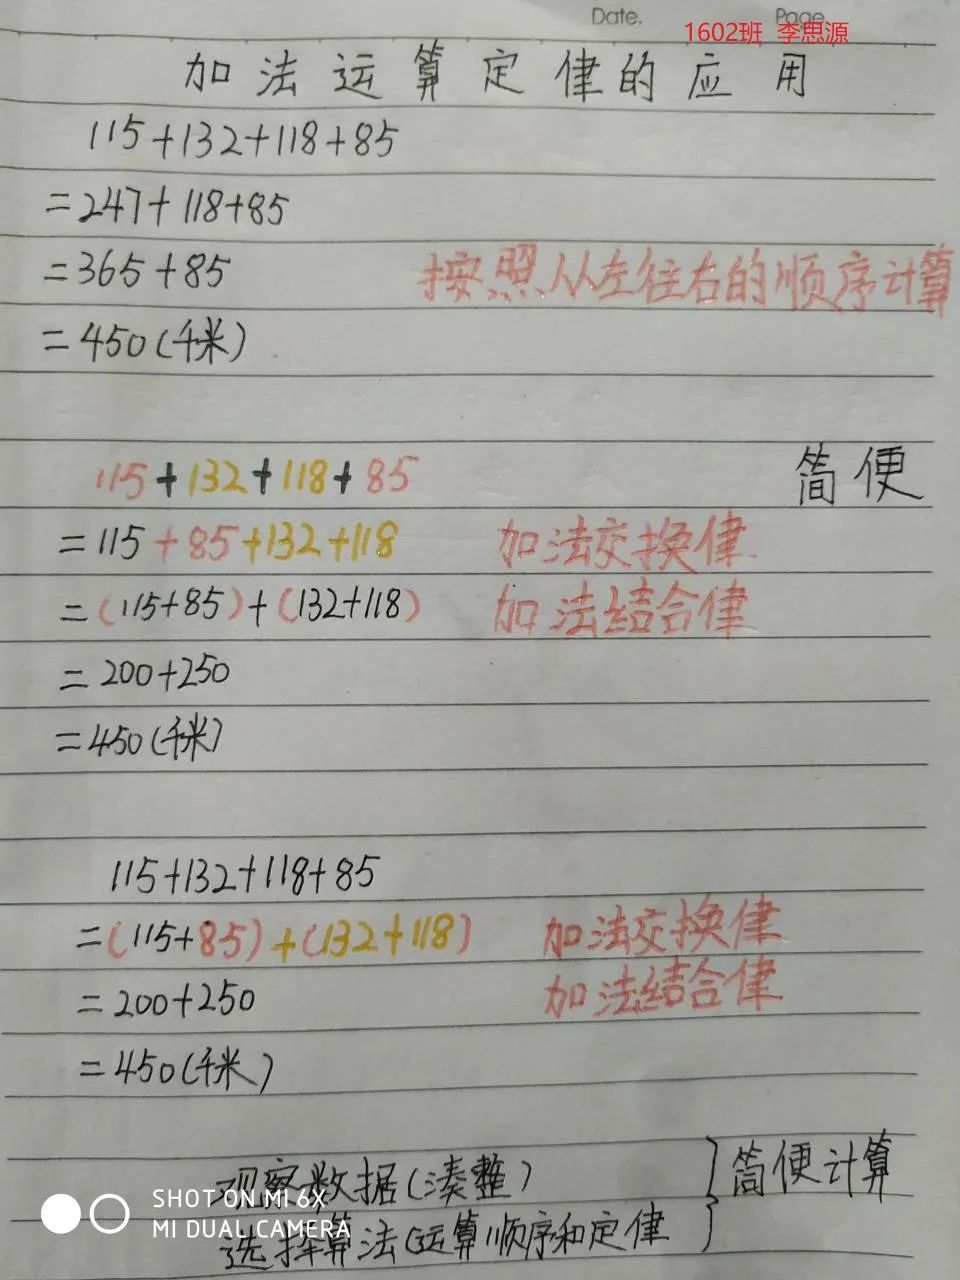 Date. Page
1602班 李思源
加法运算定律的应用
115+132+118+85
=247+118+85
=365+85 按照从左往右的顺序计算
=450(千米)
115+132+118+85 简便
=115+85+132+118 加法交换律
=(115+85)+(132+118) 加法结合律
=200+250
=450(千米)
115+132+118+85
=(115+85)+(132+118) 加法交换律
=200+250 加法结合律
=450(千米)
观察数据(凑整) } 简便计算
选择算法(运算顺序和定律
SHOT ON MI 6X
MI DUAL CAMERA